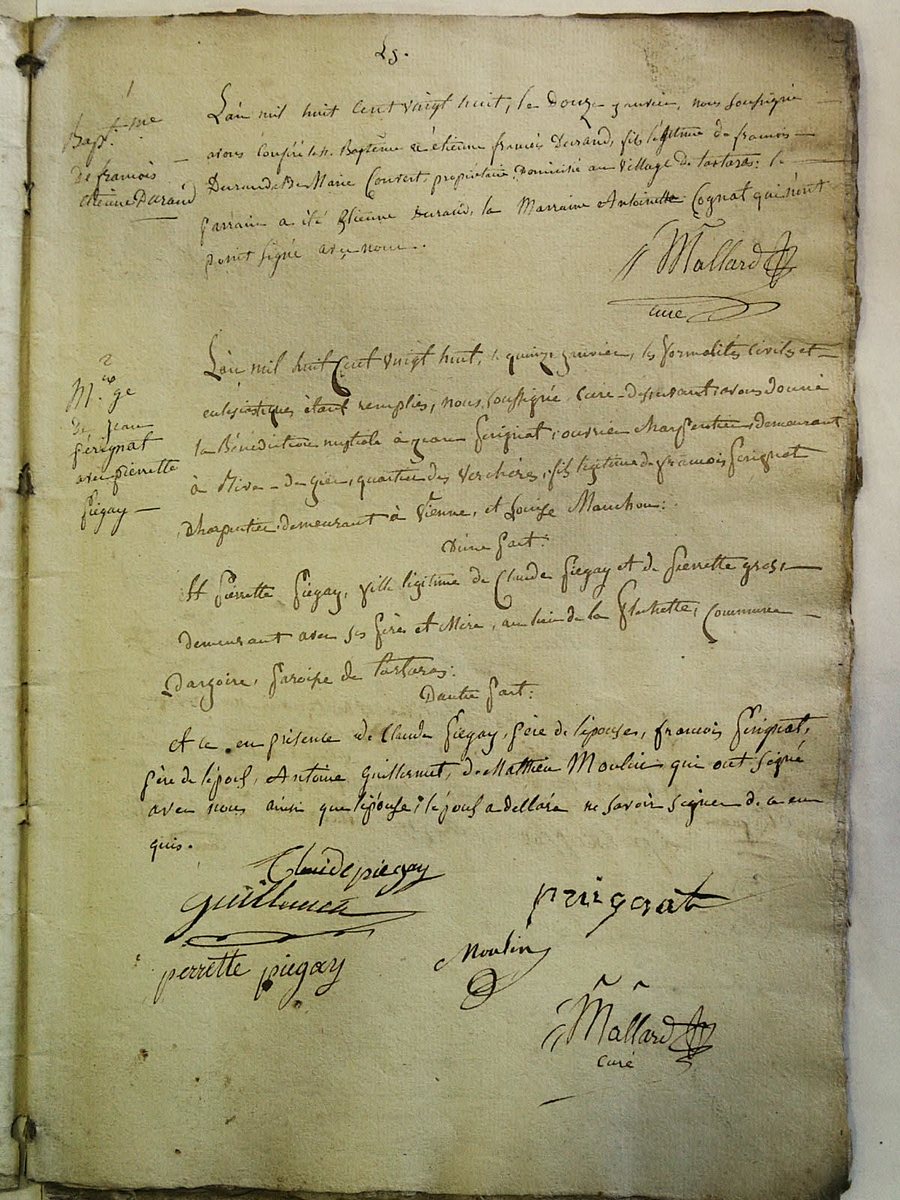 Bapt. me
De francois
etienne Durand
L'an mil huit Cent vingt huit, le Douze janvier, nous soussigné
avons Conféré le st. Baptême à étienne francois Durand, fils légitime de francois
Durand et de Marie Couvert, propriétaire, Domicilié au village de tartaras; le
parrain a été Etienne Durand, la Marraine Antoinette Cognat qui n'ont
point signé avec nous.
Mallard
curé
2
M. ge
De jean
pérignat
avec pierrette
piégay
L'an mil huit Cent vingt huit, le quinze janvier, les formalités civiles et
eclésiastiques étant remplies, nous, soussigné Curé-desservant, avons donné
la Bénédiction nuptiale à jean pérignat, ouvrier charpentier, demeurant
à Rive-de-gier, quartier des Verchères, fils légitime de francois pérignat
Charpentier, demeurant à Vienne, et Louise Manchon:
D'une part:
Et pierrette piégay, fille légitime de Claude piégay et de pierrette gros,
demeurant avec ses père et Mère, au lieu de la flachette, Commune
Dargoire, paroisse de tartaras:
D'autre part:
Et ce en présence de Claude piégay, père de l'épouse, francois pérignat,
père de l'époux, Antoine guillermet, de Mathieu Moulin qui ont signé
avec nous ainsi que l'épouse; l'époux a déclaré ne savoir signer de ce en
quis.
Claude piegay
perignat
perrette piegay
Moulin
Mallard
curé